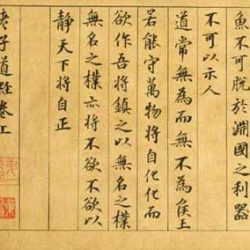 魚不可脫於淵國之利器
不可以示人
道常無為而無不為侯王
若能守萬物將自化化而
欲作吾將鎮之以無名之樸
無名之樸亦將不欲不欲以
靜天下將自正
老子道經卷上